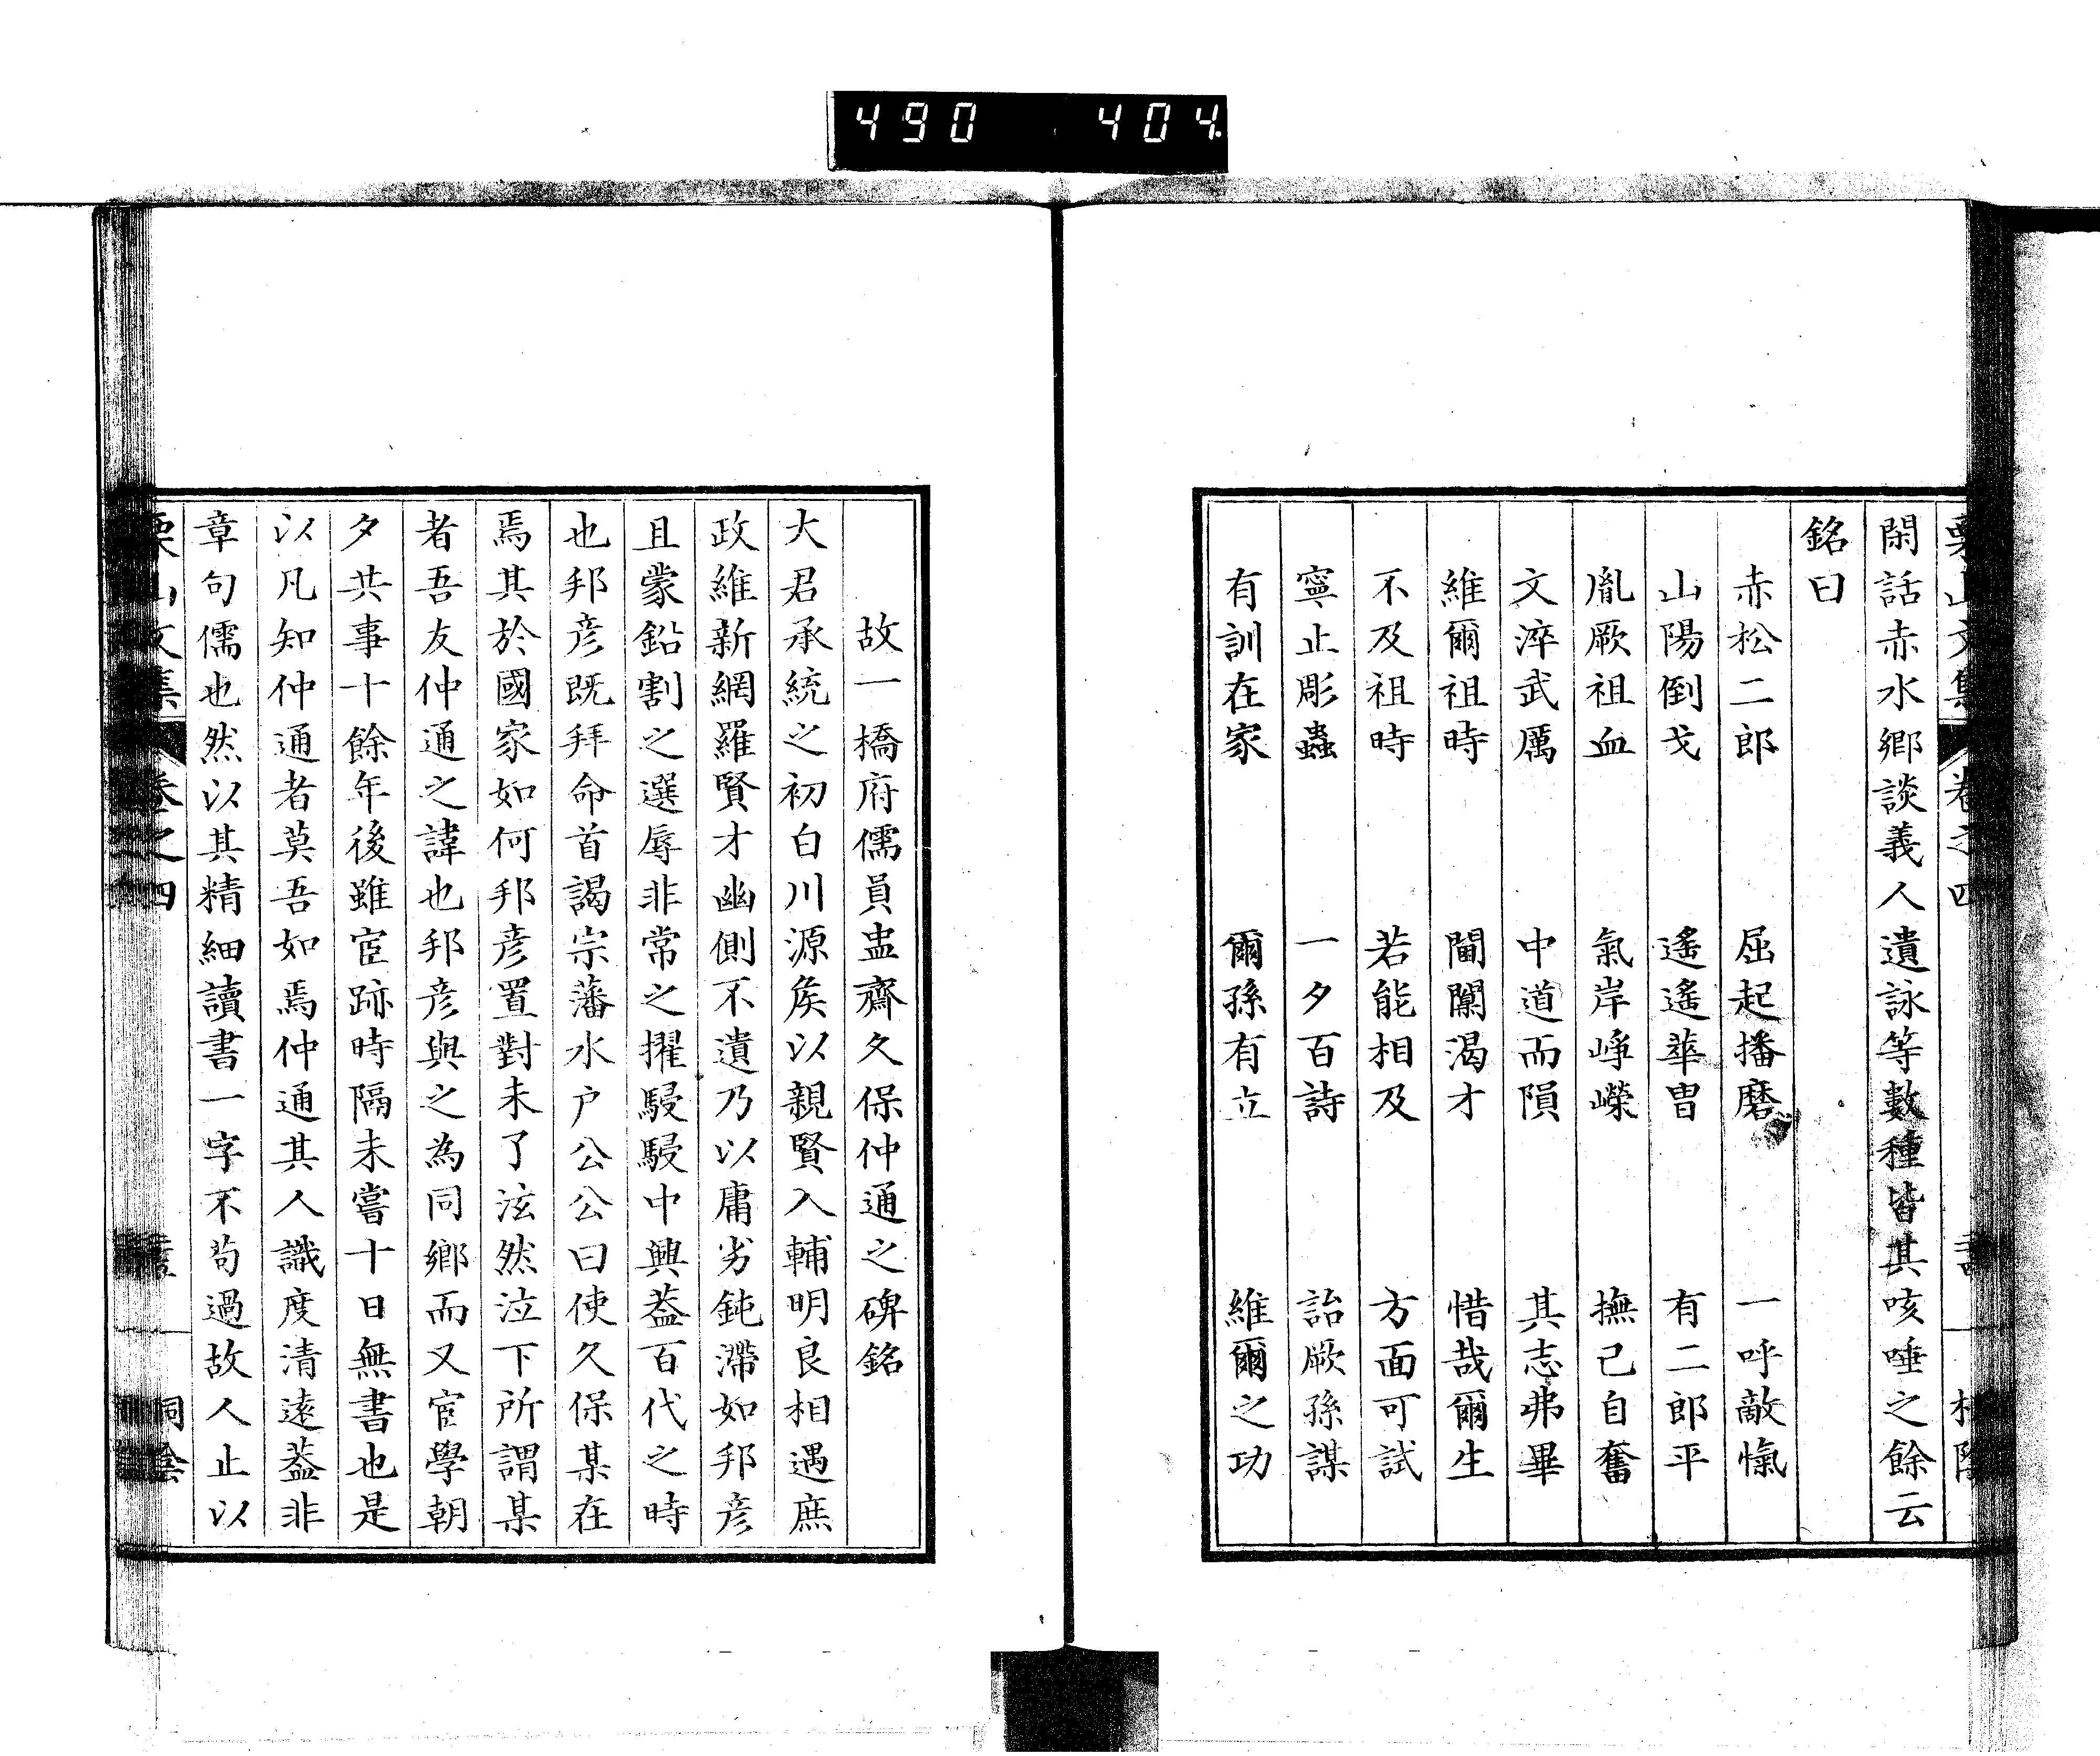 490 404
栗山文集 卷之四
閑話赤水鄉談義人遺詠等數種皆其咳唾之餘云
銘曰
赤松二郎 屈起播磨 一呼敵愾
山陽倒戈 遙遙華胄 有二郎平
胤厥祖血 氣岸崢嶸 撫己自奮
文淬武厲 中道而隕 其志弗畢
維爾祖時 閫閫渴才 惜哉爾生
不及祖時 若能相及 方面可試
寧止彫蟲 一夕百詩 詒厥孫謀
有訓在家 爾孫有立 維爾之功
故一橋府儒員盅齋久保仲通之碑銘
大君承統之初白川源矦以親賢入輔明良相遇庶
政維新網羅賢才幽側不遺乃以庸劣鈍滯如邦彥
且蒙鉛割之選辱非常之擢駸駸中興葢百代之時
也邦彥既拜命首謁宗藩水户公公曰使久保某在
焉其於國家如何邦彥置對未了泫然泣下所謂某
者吾友仲通之諱也邦彥與之為同鄉而又宦學朝
夕共事十餘年後雖宦跡時隔未嘗十日無書也是
以凡知仲通者莫吾如焉仲通其人識度清遠葢非
章句儒也然以其精細讀書一字不苟過故人止以
栗山文集 卷之四 桐陰